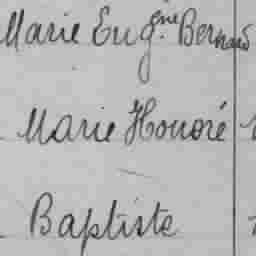 Marie Eug.ène Bernard
Marie Honoré
Baptiste